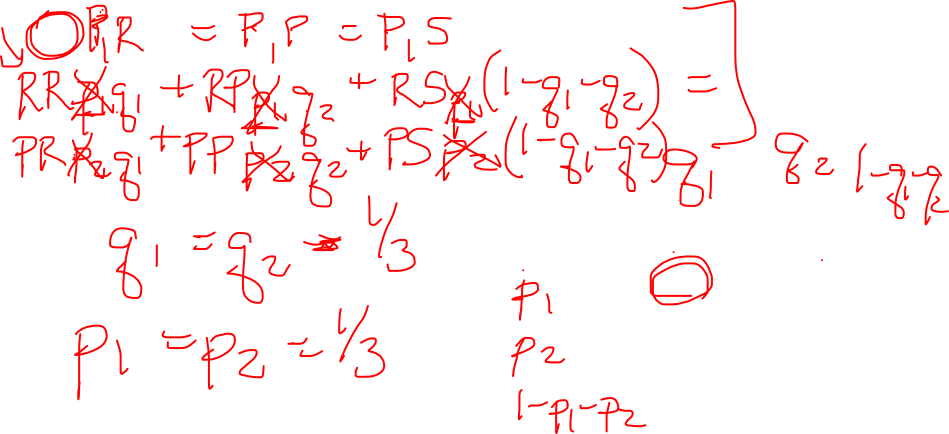 P₁R = P₁P = P₁S
RR q₁ + RP q₂ + RS (1-q₁-q₂) =
PR q₁ + PP q₂ + PS (1-q₁-q₂)
q₁ q₂ 1-q₁-q₂
q₁ = q₂ = 1/3
p₁ = p₂ = 1/3
p₁
p₂
1-p₁-p₂